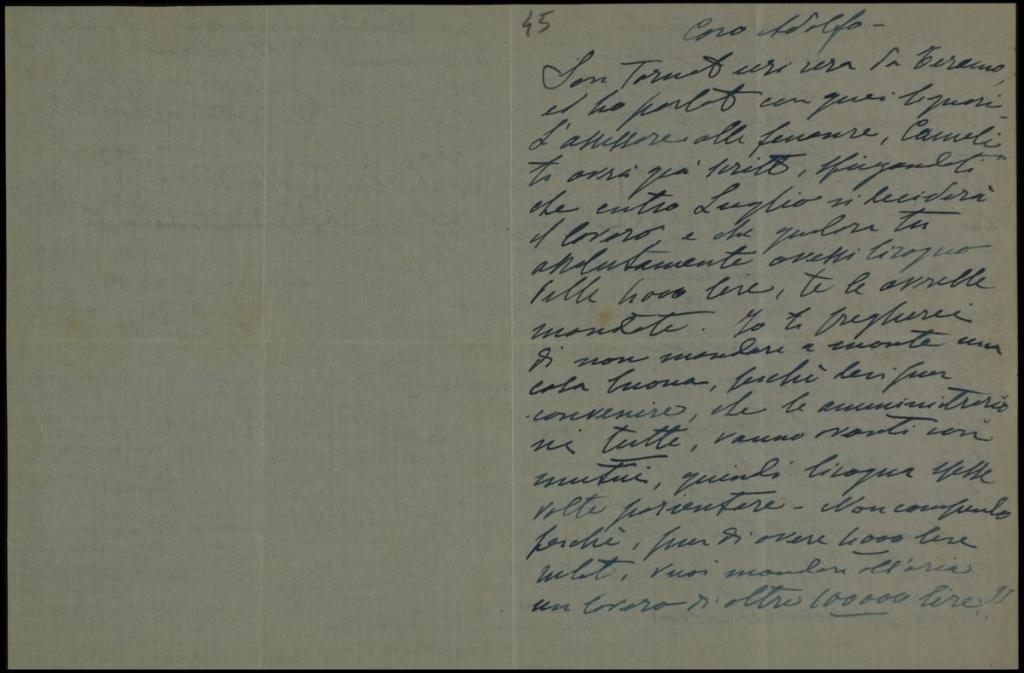 45
Caro Adolfo -
Son tornato ieri sera da Teramo,
ed ho parlato con quei signori.
L'assessore alle finanze, Cameli
ti avrà già scritto, spiegandoti
che entro Luglio si deciderà
il lavoro, e che qualora tu
assolutamente avessi bisogno
delle 4000 lire, te le avrebbe
mandate. Io ti pregherei
di non mandare a monte una
cosa buona, perchè devi pur
convenire, che le amministrazio
ni tutte, vanno avanti con
mutui, quindi bisogna spesse
volte pazientare - Non comprendo
perchè, pur di avere 4000 lire
subito, vuoi mandare all'aria
un lavoro di oltre 100000 lire!!